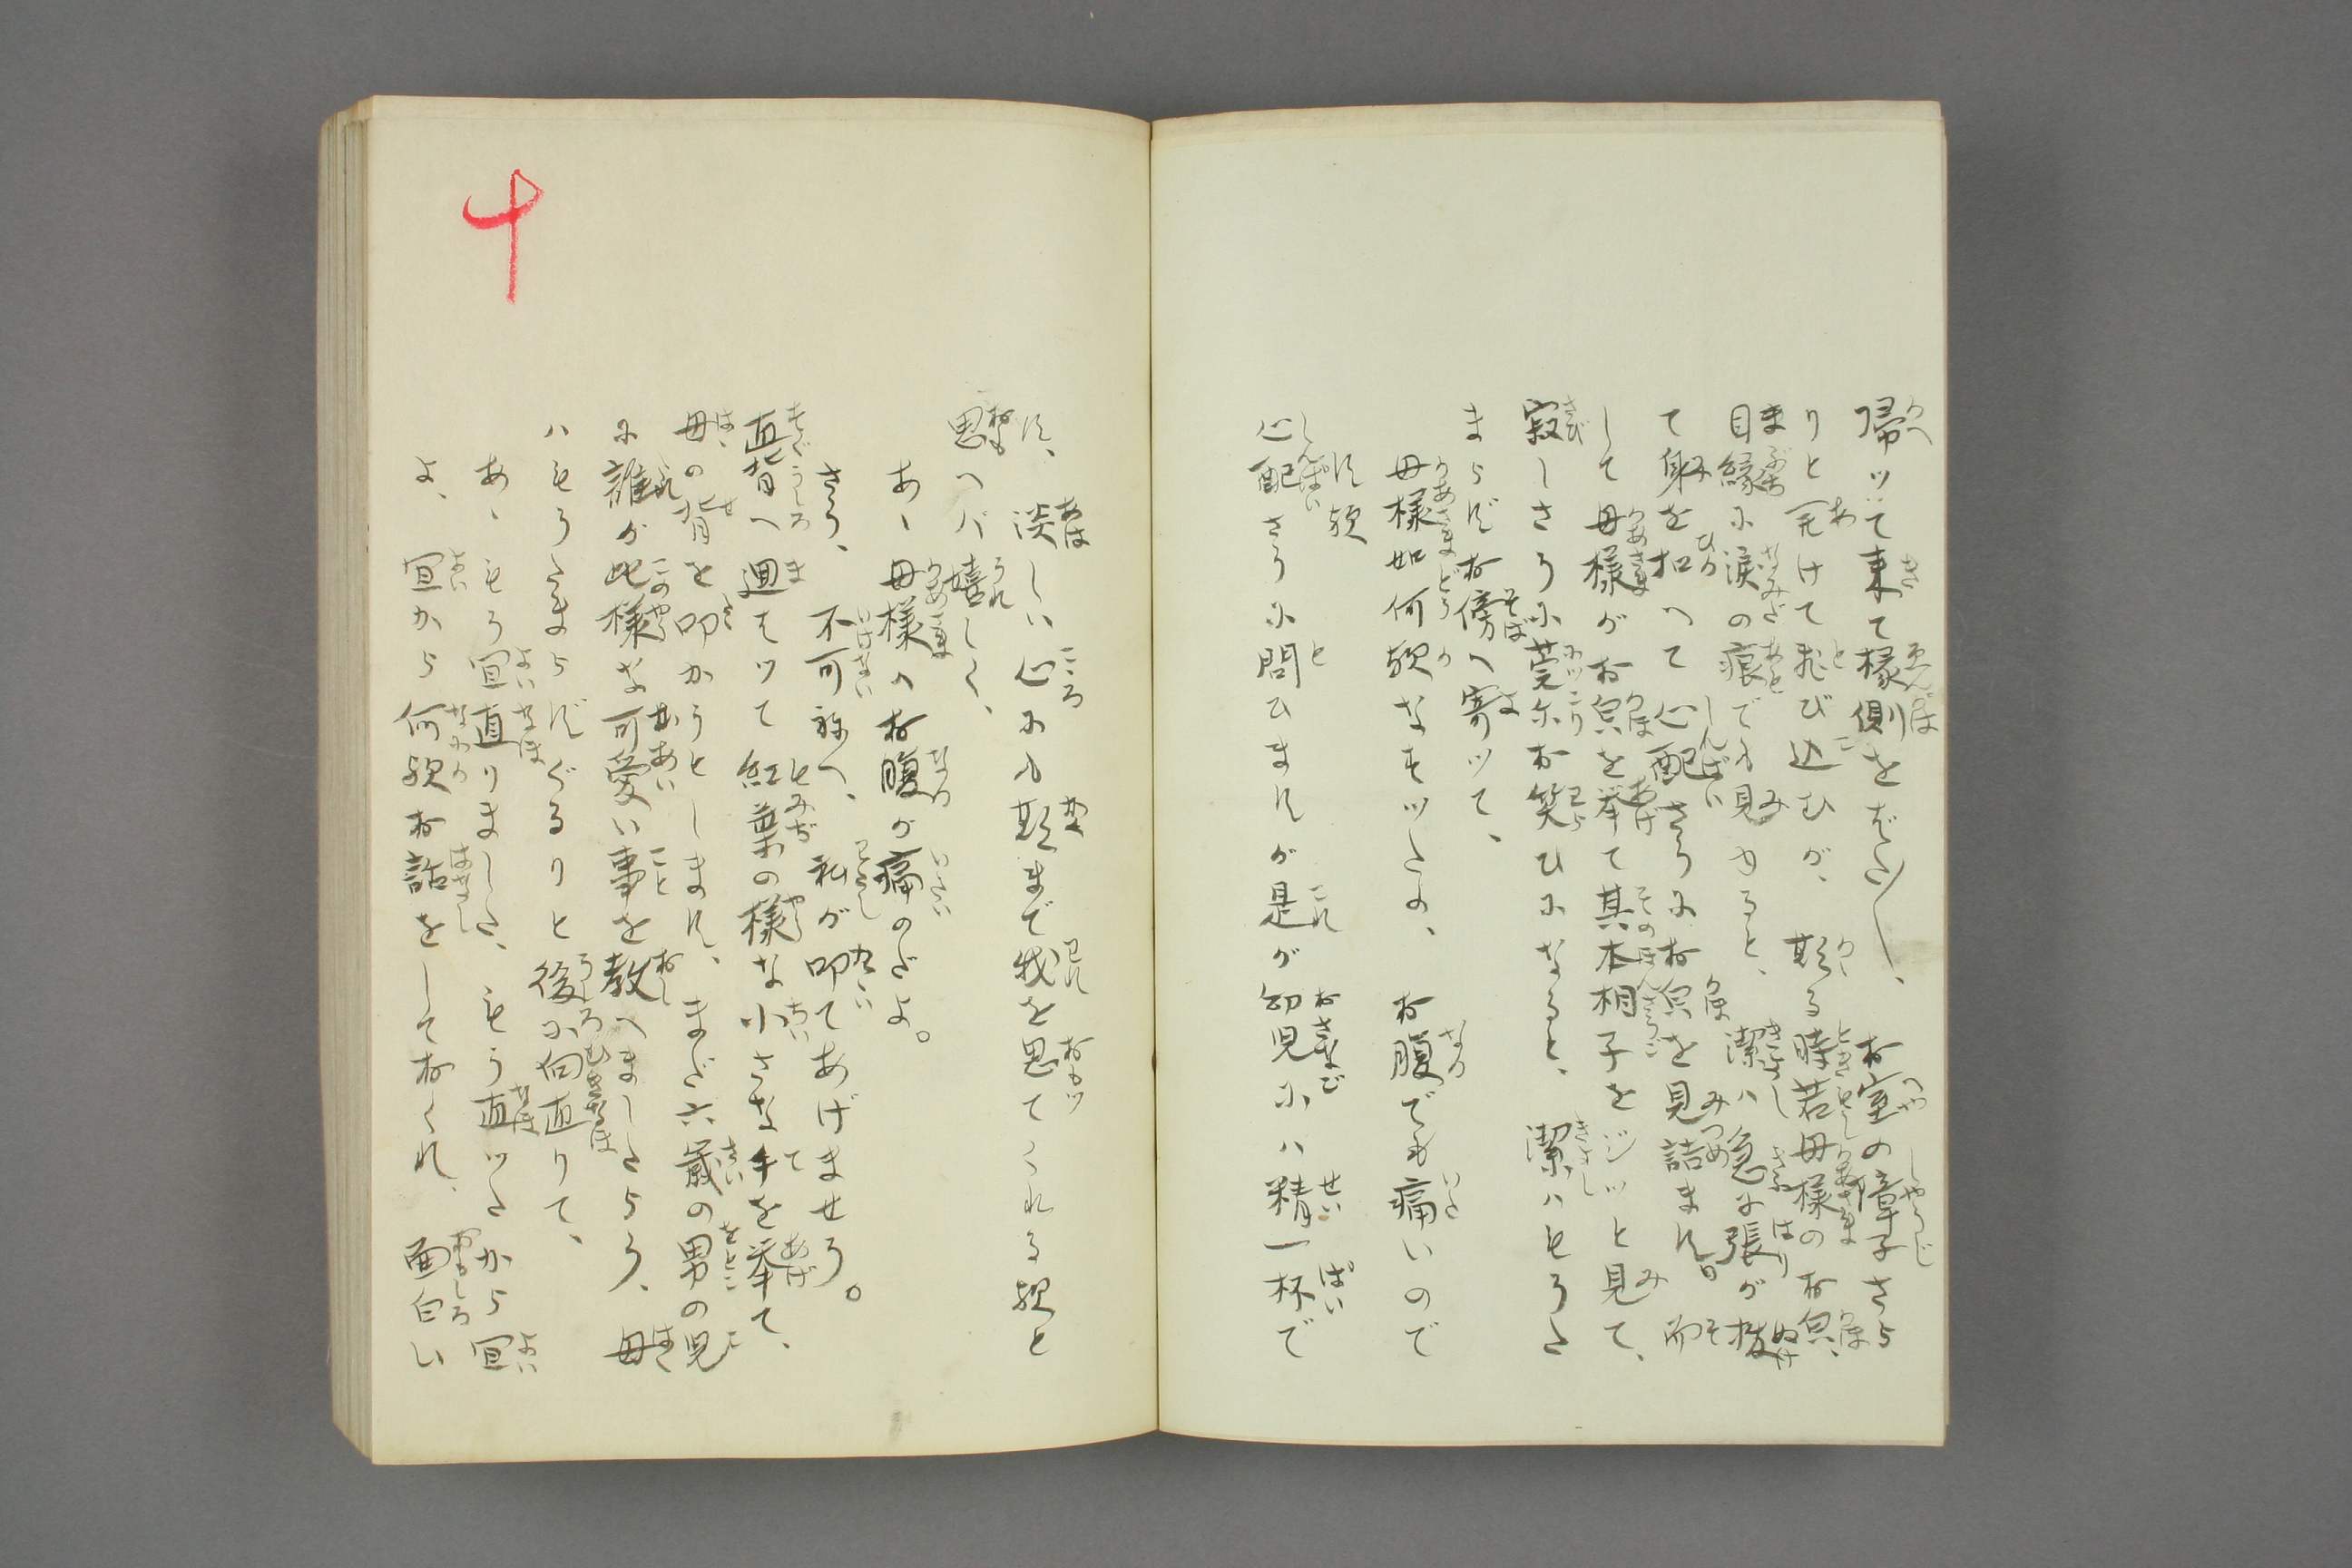 帰ッて来て椽側をばた〱、お室の障子さら
りと開けて飛び込むが、斯る時若母様のお㒵、
目縁に涙の痕でも見ゆると、潔ハ急に張が抜
て身を扣へて心配さうにお㒵を見詰ます。而
して母様がお㒵を挙て其本相子をジッと見て、
寂しさうに莞尓お笑ひになると、潔ハもうた
まらずお傍へ寄ッて、
母様如何歟なすッたの、お腹でも痛いので
す歟
心配さうに問ひますが是が幼児にハ精一杯で
す、淡しい心にも斯まで我を思てくれる歟と
思へバ嬉しく、
あゝ母様ハお腹が痛のだよ。
さう、不可ねへ、私が叩てあげませう。
直背へ廻ッて紅葉の様な小さな手を挙て、
母の背を叩かうとします、まだ六歳の男の児
に誰が此様な可愛い事を教へましたらう、母
ハもうたまらずぐるりと後に向直りて、
あゝもう宜直りました、もう直ッたから宜
よ、宜から何歟お話をしておくれ、面白い
十